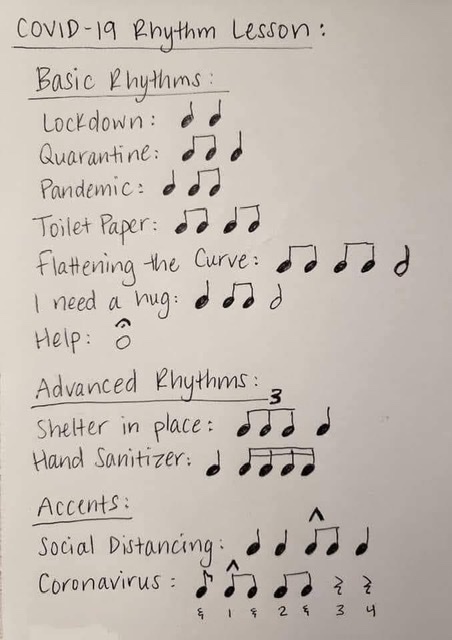 COVID-19 Rhythm Lesson:
Basic Rhythms:
Lockdown:
Quarantine:
Pandemic:
Toilet Paper:
Flattening the Curve:
I need a hug:
Help:
Advanced Rhythms:
3
Shelter in place:
Hand Sanitizer:
Accents:
Social Distancing:
Coronavirus:
& 1 & 2 & 3 4